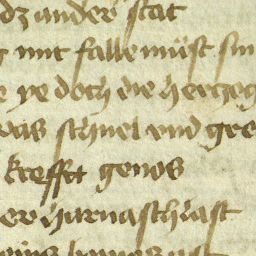 ander stat
mit falle müst sin
ye doch die herzog
was schnel vnd gre
krefft genos
er harnasch last